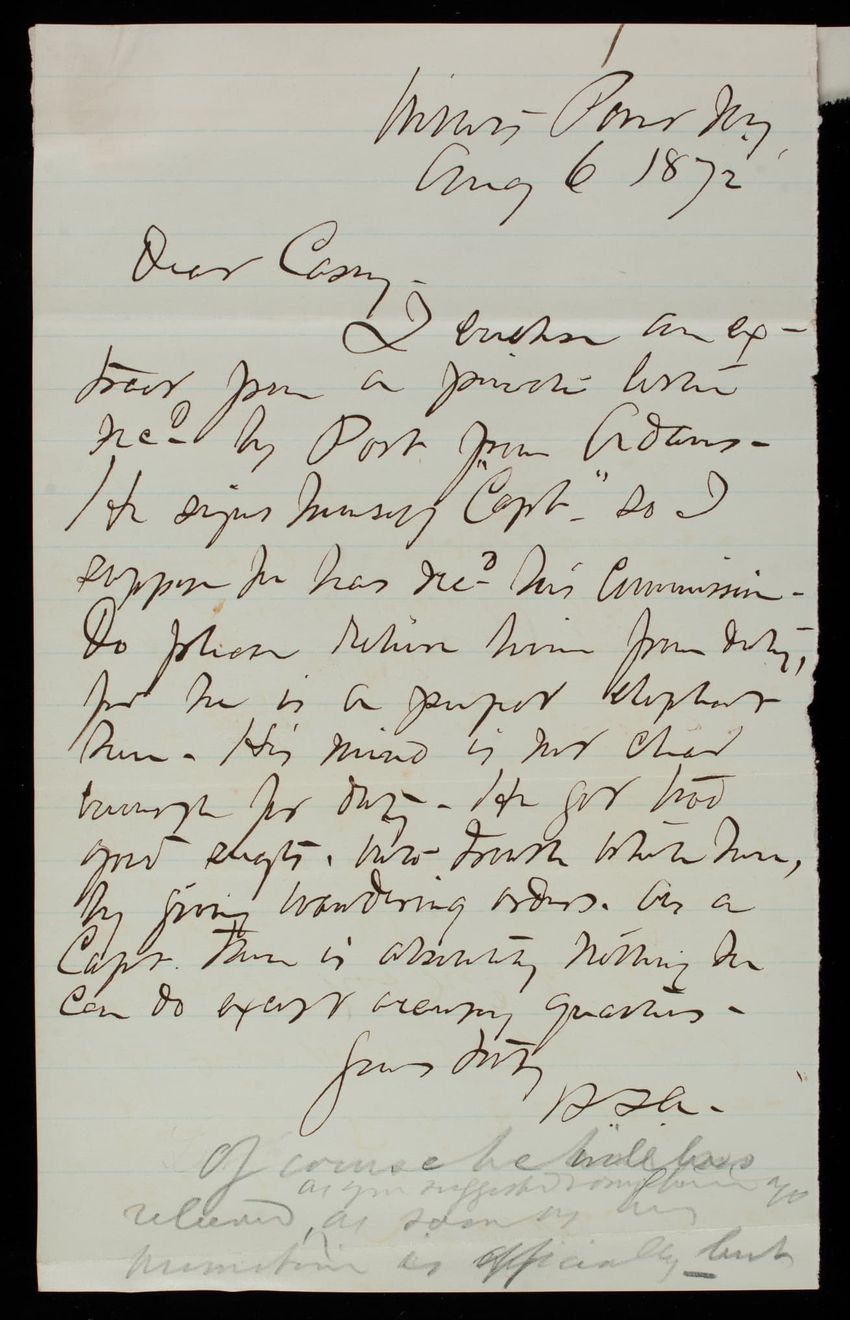 Willets Point N.Y.
Aug 6 1872
Dear Casey -
I enclose an ex-
tract from a private letter
recd by Post from Adams -
He signs himself "Capt-" so I
suppose he has recd his Commission -
Do please relieve him from duty,
for he is a perfect elephant
here - His mind is not clear
enough for duty - He got two
good sergts. into trouble while here,
by giving wandering orders. As a
Capt. there is absolutely nothing he
can do except occupy quarters -
Yours truly
Of course he will be
as you suggested sometime ago
relieved, as soon as his
promotion is officially